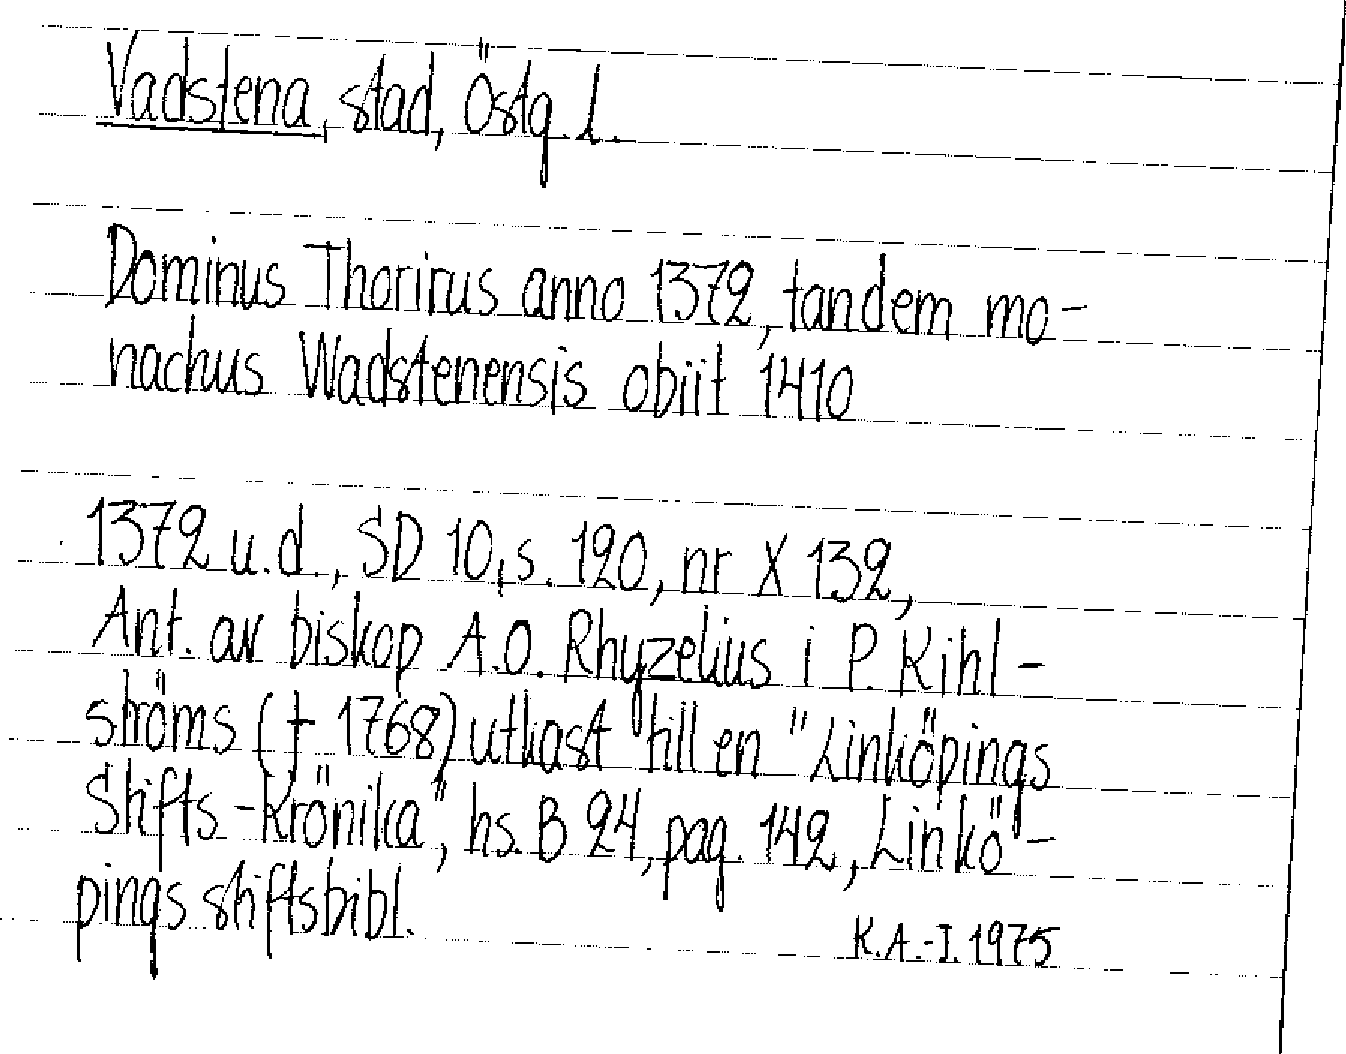 Vadstena, stad, Östg. l.
Dominus Thorirus anno 1372, tandem mo-
nachus Wadstenensis obiit 1410
1372 u.d., SD 10, s. 120, nr X 132,
Ant. av biskop A.O. Rhyzelius i P. Kihl-
ströms († 1768) utkast till en "Linköpings
Stifts-Krönika", hs. B 24, pag. 142, Linkö-
pings stiftsbibl.
K.A.-I. 1975